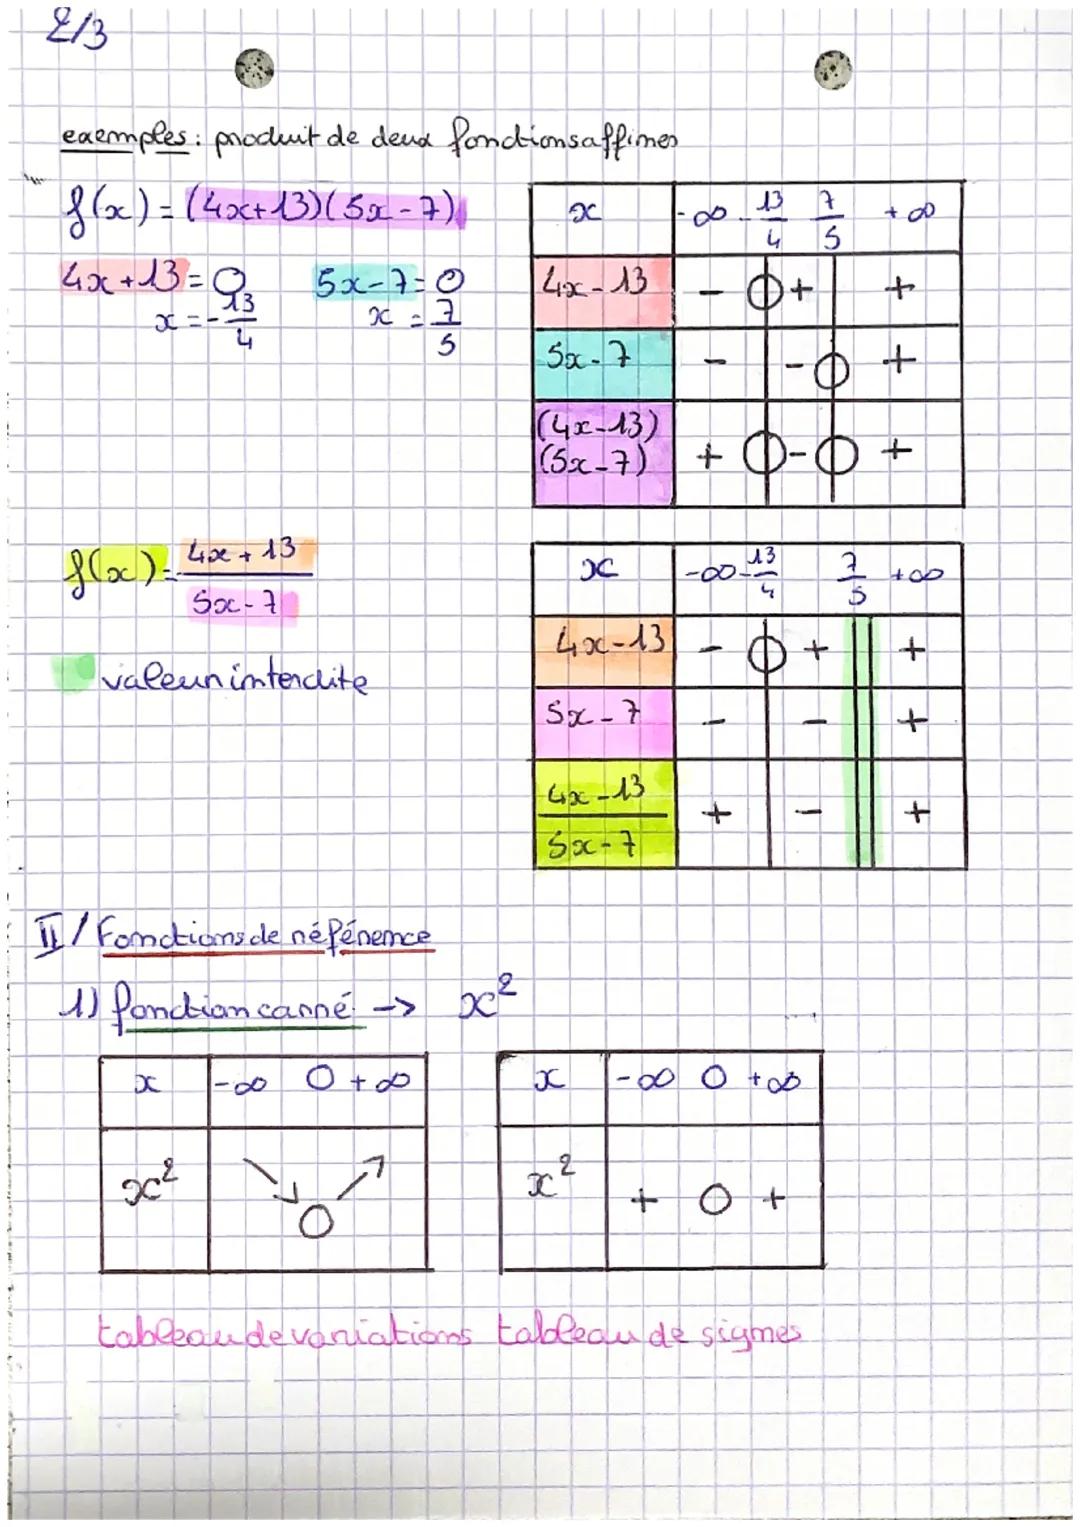 2/3
exemples : produit de deux fonctions affines
f(x) = (4x+13)(5x-7)
4x+13 = 0
x = -13/4
5x-7 = 0
x = 7/5
x -∞ -13/4 7/5 +∞
4x-13 - 0 + +
5x-7 - - 0 +
(4x-13)
(5x-7) + 0 - 0 +
f(x) = 4x+13
5x-7
valeur interdite
x -∞ -13/4 7/5 +∞
4x-13 - 0 + || +
5x-7 - - || +
4x-13
5x-7 + - || +
II/ Fonctions de référence
1) fonction carré -> x²
x -∞ 0 +∞
x² ↘ 0 ↗
tableau de variations
x -∞ 0 +∞
x² + 0 +
tableau de signes